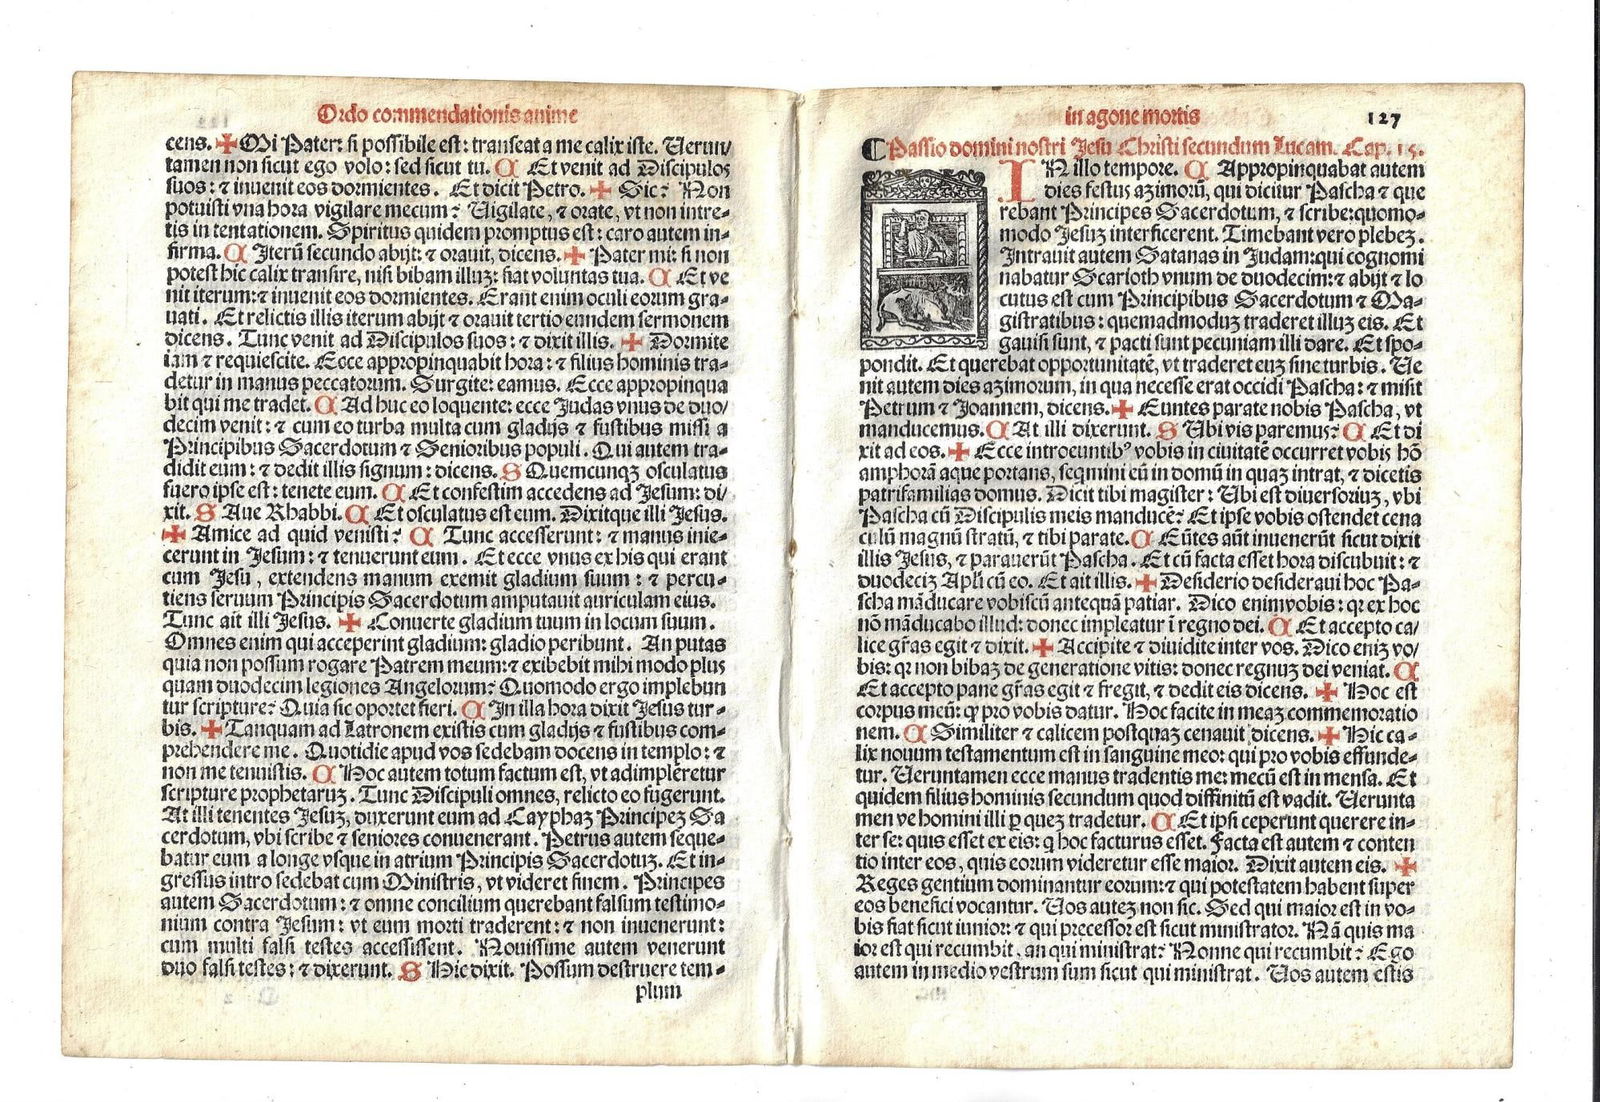 Ordo commendationis anime
cens. ✚ Mi Pater: si possibile est: transeat a me calix iste. Uerun/
tamen non sicut ego volo: sed sicut tu. C Et venit ad Discipulos
suos: ⁊ inuenit eos dormientes. Et dicit Petro. ✚ Sic? Non
potuisti vna hora vigilare mecum? Uigilate, ⁊ orate, vt non intre-
tis in tentationem. Spiritus quidem promptus est: caro autem in-
firma. C Iterū secundo abijt: ⁊ orauit, dicens. ✚ Pater mi: si non
potest hic calix transire, nisi bibam illuꝫ: fiat voluntas tua. C Et ve
nit iterum: ⁊ inuenit eos dormientes. Erant enim oculi eorum gra-
uati. Et relictis illis iterum abijt ⁊ orauit tertio eundem sermonem
dicens. Tunc venit ad Discipulos suos: ⁊ dixit illis. ✚ Dormite
iam ⁊ requiescite. Ecce appropinquabit hora: ⁊ filius hominis tra-
detur in manus peccatorum. Surgite: eamus. Ecce appropinqua
bit qui me tradet. C Ad huc eo loquente: ecce Judas vnus de duo/
decim venit: ⁊ cum eo turba multa cum gladijs ⁊ fustibus missi a
Principibus Sacerdotum ⁊ Senioribus populi. Qui autem tra-
didit eum: ⁊ dedit illis signum: dicens. S Quemcunqꝫ osculatus
fuero ipse est: tenete eum. C Et confestim accedens ad Jesum: di/
xit. S Aue Rhabbi. C Et osculatus est eum. Dixitque illi Jesus.
✚ Amice ad quid venisti? C Tunc accesserunt: ⁊ manus inie-
cerunt in Jesum: ⁊ tenuerunt eum. Et ecce vnus ex his qui erant
cum Jesu, extendens manum exemit gladium suum: ⁊ percu-
tiens seruum Principis Sacerdotum amputauit auriculam eius.
Tunc ait illi Jesus. ✚ Conuerte gladium tuum in locum suum.
Omnes enim qui acceperint gladium: gladio peribunt. An putas
quia non possum rogare Patrem meum: ⁊ exibebit mihi modo plus
quam duodecim legiones Angelorum? Quomodo ergo implebun
tur scripture? Quia sic oportet fieri. C In illa hora dixit Jesus tur-
bis. ✚ Tanquam ad Latronem existis cum gladijs ⁊ fustibus com-
prehendere me. Quotidie apud vos sedebam docens in templo: ⁊
non me tenuistis. C Hoc autem totum factum est, vt adimpleretur
scripture prophetaruꝫ. Tunc Discipuli omnes, relicto eo fugerunt.
At illi tenentes Jesuꝫ, duxerunt eum ad Cayphaꝫ Principeꝫ Sa
cerdotum, vbi scribe ⁊ seniores conuenerant. Petrus autem seque-
batur eum a longe vsque in atrium Principis Sacerdotuꝫ. Et in-
gressus intro sedebat cum Ministris, vt videret finem. Principes
autem Sacerdotum: ⁊ omne concilium querebant falsum testimo-
nium contra Jesum: vt eum morti traderent: ⁊ non inuenerunt:
cum multi falsi testes accessissent. Nouissime autem venerunt
duo falsi testes: ⁊ dixerunt. S Hic dixit. Possum destruere tem-
plum
in agone mortis 127
Passio domini nostri Jesu Christi secundum Lucam. Cap. 15.
IN illo tempore. C Appropinquabat autem
dies festus azimorū, qui dicitur Pascha: ⁊ que
rebant Principes Sacerdotum, ⁊ scribe: quomo-
modo Jesuꝫ interficerent. Timebant vero plebeꝫ.
Intrauit autem Satanas in Judam: qui cognomi
nabatur Scarioth vnum de duodecim: ⁊ abijt ⁊ lo
cutus est cum Principibus Sacerdotum ⁊ Ma-
gistratibus: quemadmoduꝫ traderet illuꝫ eis. Et
gauisi sunt, ⁊ pacti sunt pecuniam illi dare. Et spo-
pondit. Et querebat opportunitatē, vt traderet euꝫ sine turbis. Ue
nit autem dies azimorum, in qua necesse erat occidi Pascha: ⁊ misit
Petrum ⁊ Joannem, dicens. ✚ Euntes parate nobis Pascha, vt
manducemus. C At illi dixerunt. S Ubi vis paremus? C Et di
xit ad eos. ✚ Ecce introeuntibꝰ vobis in ciuitatē occurret vobis hō
amphorā aque portans, seqmini eū in domū in quaꝫ intrat, ⁊ dicetis
patrifamilias domus. Dicit tibi magister: Ubi est diuersoriuꝫ, vbi
Pascha cū Discipulis meis manducē? Et ipse vobis ostendet cena
culū magnū stratū, ⁊ tibi parate. C Eūtes aūt inuenerūt sicut dixit
illis Jesus, ⁊ parauerūt Pascha. Et cū facta esset hora discubuit: ⁊
duodeciꝫ Apli cū eo. Et ait illis. ✚ Desiderio desideraui hoc Pa-
scha māducare vobiscū antequā patiar. Dico enim vobis: qꝛ ex hoc
nō māducabo illud: donec impleatur ī regno dei. C Et accepto ca/
lice gr̄as egit ⁊ dixit. ✚ Accipite ⁊ diuidite inter vos. Dico eniꝫ vo/
bis: qꝛ non bibaꝫ de generatione vitis: donec regnuꝫ dei veniat. C
Et accepto pane gr̄as egit ⁊ fregit, ⁊ dedit eis dicens. ✚ Hoc est
corpus meū: qđ pro vobis datur. Hoc facite in meaꝫ commemoratio
nem. C Similiter ⁊ calicem postquaꝫ cenauit dicens. ✚ Hic ca-
lix nouum testamentum est in sanguine meo: qui pro vobis effunde-
tur. Ueruntamen ecce manus tradentis me: mecū est in mensa. Et
quidem filius hominis secundum quod diffinitū est vadit. Uerunta
men ve homini illi ꝑ queꝫ tradetur. C Et ipsi ceperunt querere in-
ter se: quis esset ex eis: q hoc facturus esset. Facta est autem ⁊ conten
tio inter eos, quis eorum videretur esse maior. Dixit autem eis. ✚
Reges gentium dominantur eorum: ⁊ qui potestatem habent super
eos benefici vocantur. Uos auteꝫ non sic. Sed qui maior est in vo-
bis fiat sicut iunior: ⁊ qui precessor est sicut ministrator. Nā quis ma
ior est qui recumbit, an qui ministrat? Nonne qui recumbit? Ego
autem in medio vestrum sum sicut qui ministrat. Uos autem estis